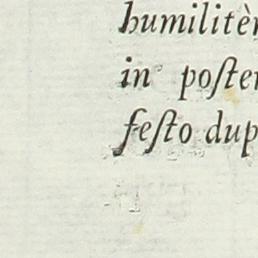 humilitèr
in poster
festo dup